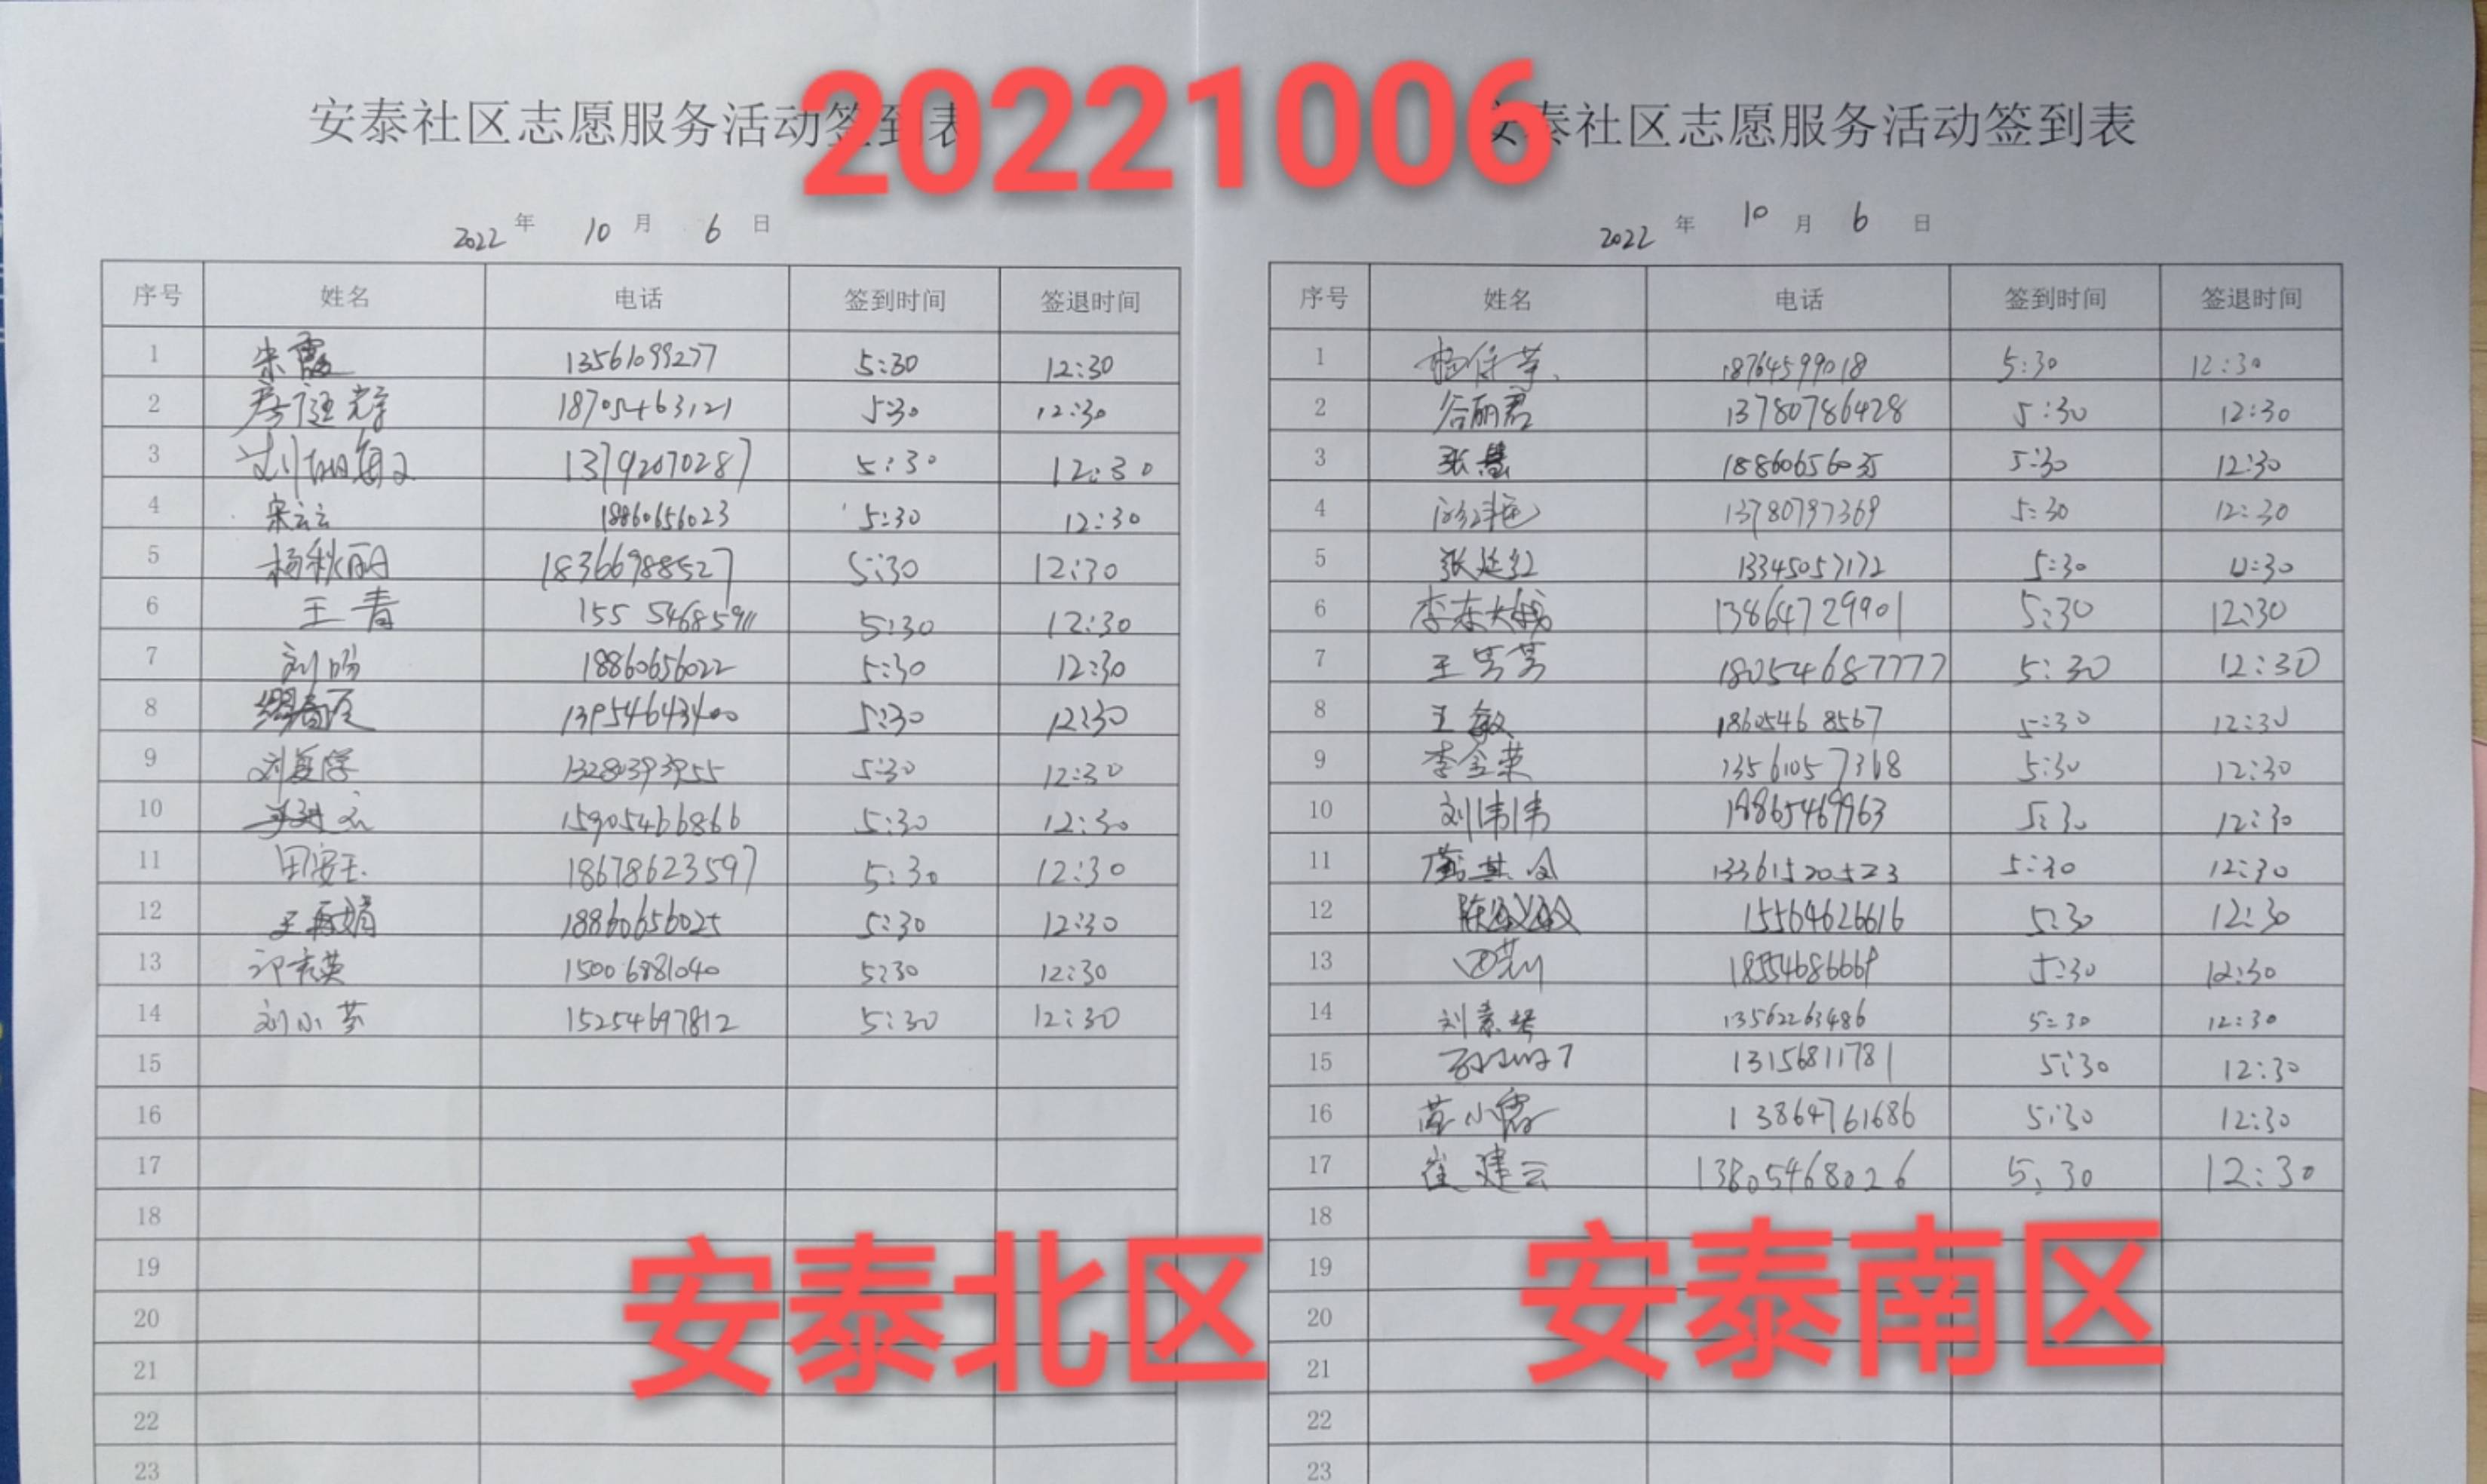 20221006
安泰社区志愿服务活动签到表
2022 年 10 月 6 日
序号 姓名 电话 签到时间 签退时间
1 宋霞 13561099277 5:30 12:30
2 18705463121 5:30 12:30
3 13792070287 5:30 12:30
4 宋云云 18860656023 5:30 12:30
5 杨秋丽 18366988527 5:30 12:30
6 王青 155 54685911 5:30 12:30
7 刘 18860656022 5:30 12:30
8 13954643400 5:30 12:30
9 刘爱学 13280393955 5:30 12:30
10 15905466866 5:30 12:30
11 田安玉 18678623597 5:30 12:30
12 王再娟 18860656025 5:30 12:30
13 15006881040 5:30 12:30
14 刘小芬 15254697812 5:30 12:30
15
16
17
18
19
20
21
22
23
安泰北区
安泰社区志愿服务活动签到表
2022 年 10 月 6 日
序号 姓名 电话 签到时间 签退时间
1 18764599018 5:30 12:30
2 谷丽君 13780786428 5:30 12:30
3 张 18860656035 5:30 12:30
4 13780797369 5:30 12:30
5 张廷红 13345057172 5:30 12:30
6 13864729901 5:30 12:30
7 王 18054687777 5:30 12:30
8 王敏 18605468567 5:30 12:30
9 李金荣 13561057368 5:30 12:30
10 刘伟伟 19865469963 5:30 12:30
11 13361520523 5:30 12:30
12 陈 15564626616 5:30 12:30
13 18554686669 5:30 12:30
14 刘素琴 13562263486 5:30 12:30
15 13156811781 5:30 12:30
16 小霞 13864761686 5:30 12:30
17 崔建云 13805468026 5:30 12:30
18
19
20
21
22
23
安泰南区